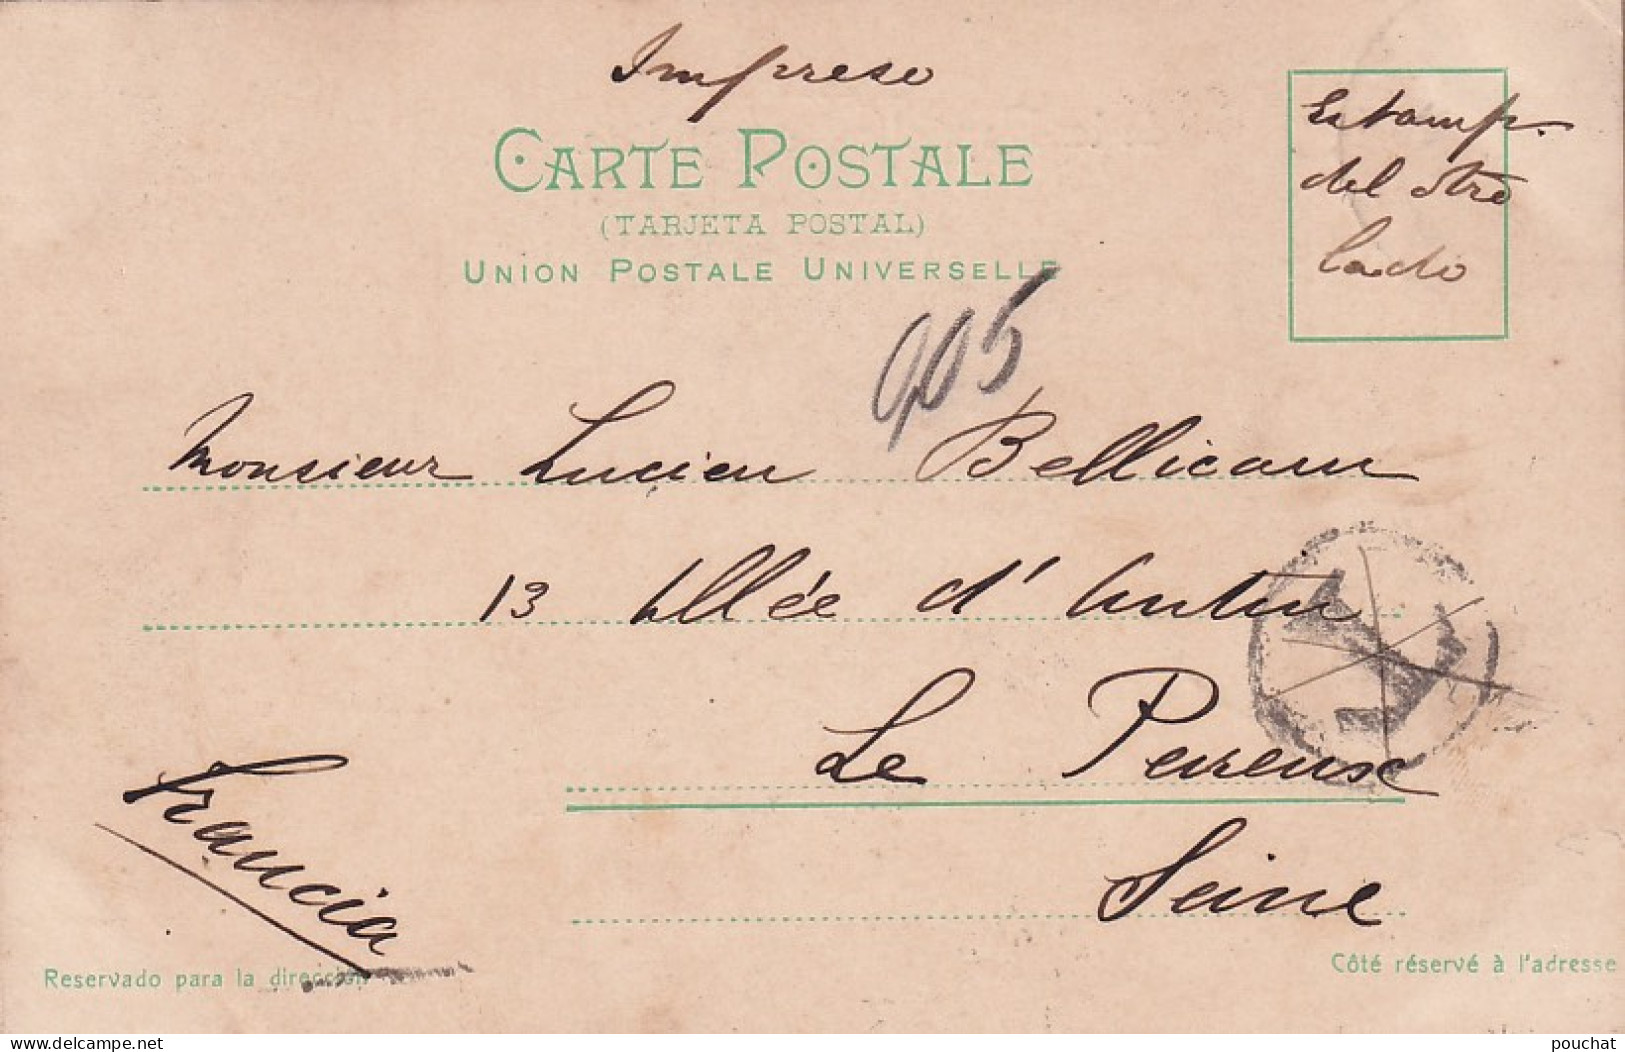 Impreso
CARTE POSTALE
(TARJETA POSTAL)
UNION POSTALE UNIVERSELLE
Estamp.
del otro
lado
905
Monsieur Lucien Bellicam
13 Allée d'Antin
Le Perreux
Seine
Francia
T
Reservado para la dirección
Côté réservé à l'adresse
pouchat